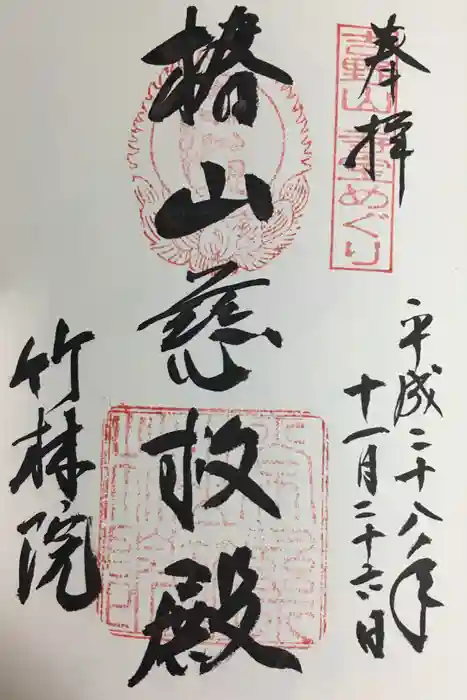 奉拝
吉野山 霊場めぐり
平成二十八年
十一月二十六日
椿山慈救殿
竹林院